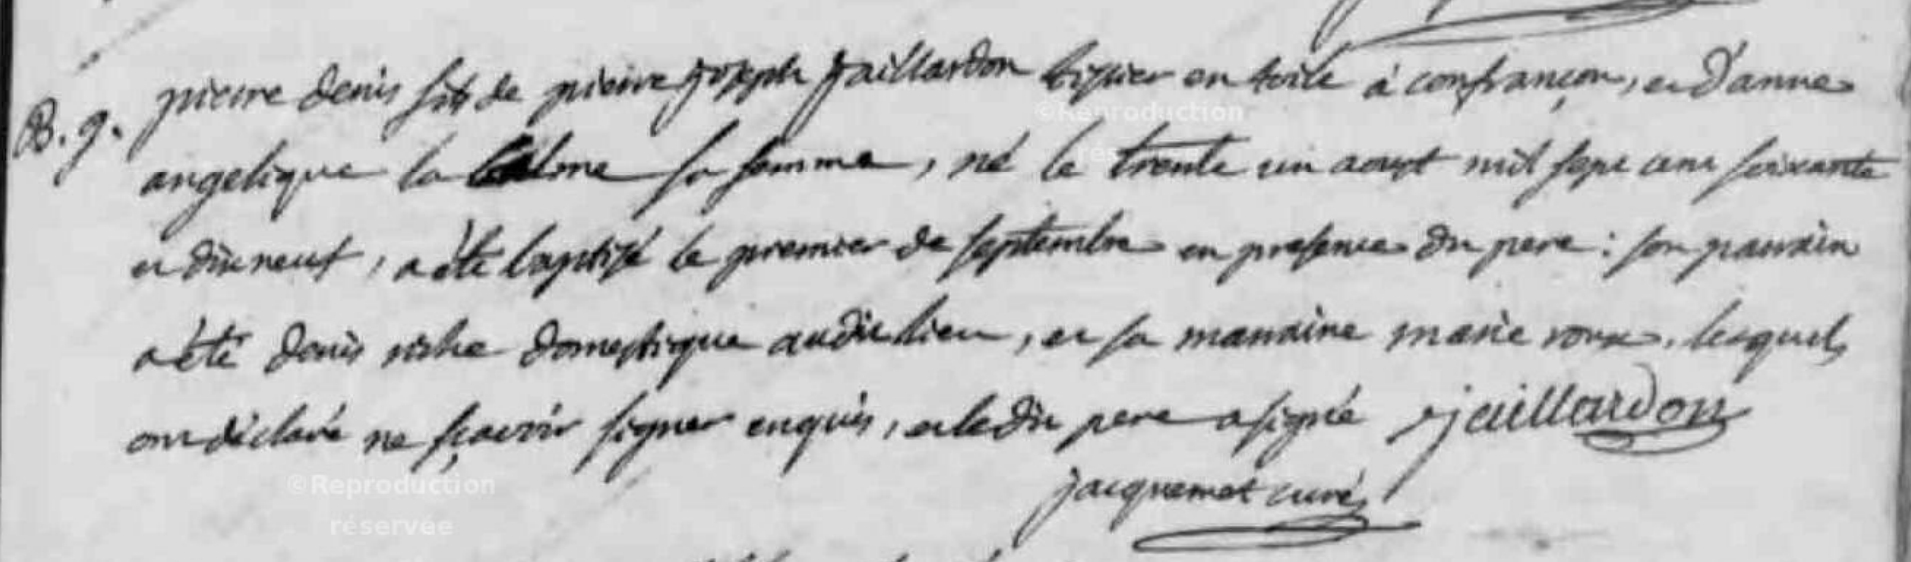 B. g. pierre denis fils de pierre joseph jaillardon tissier en toile à confrançon, et d'anne
angelique la balme sa femme, né le trente un aoust mil sept cent soixante
et dixneuf, a été baptisé le premier de septembre en presence du pere : son parrain
a été denis riche domestique audit lieu, et sa marraine marie roux, lesquels
ont déclaré ne sçavoir signer enquis, et ledit pere a signé jaillardon
jacquemet curé
©Reproduction
©Reproduction
réservée